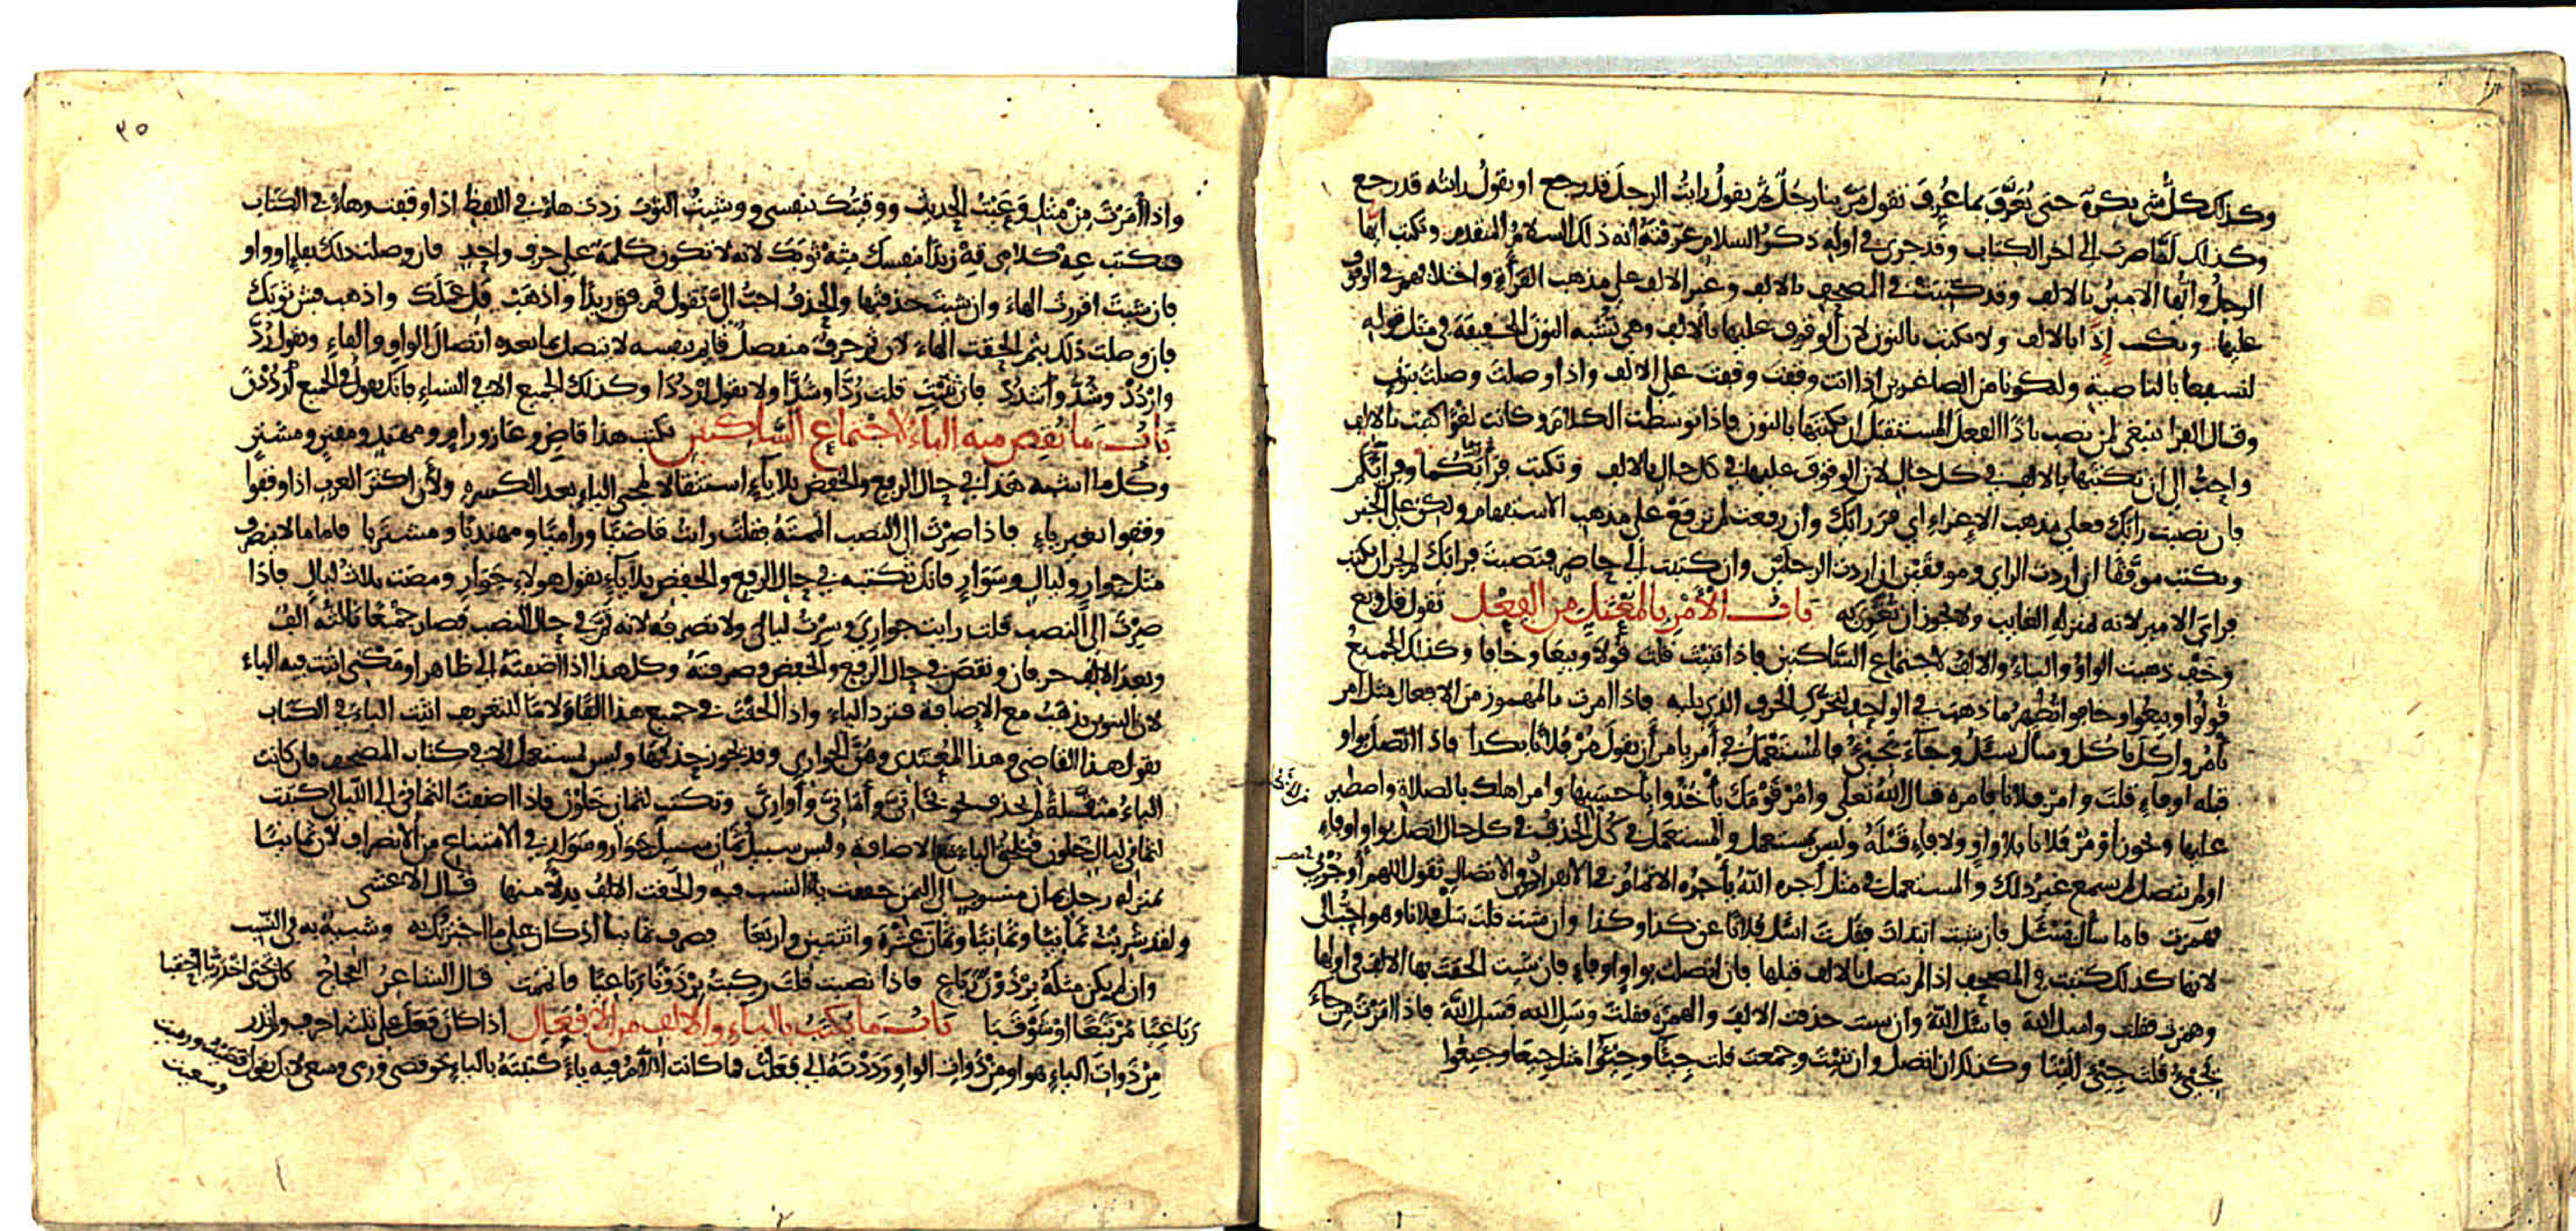 وكذلك كل شي نكرة حتى يُعَرَّف بما عُرِفَ تقول مرّ بنا رجُل ثم يقول رايتُ الرجلَ قد رجع او يقول رايته قد رجع
وكذلك لمّا صرت الى اخر الكتاب وقد جرى في اوله ذكر السلام عرّفته انه ذلك السلام المتقدم وتكتب ايها
الرجلُ وايُّها الاميرُ بالالف وقد كتبت في المصحف بالالف وغير الالف على مذهب القرّاء واختلافهم في الوقوف
عليها وتكتب إذًا بالالف ولا تكتب بالنون لان الوقوف عليها بالالف وهي تشبه النون الخفيفة في مثل قوله
لنسفعا بالناصية وليكونا من الصاغرين اذا انت وقفت وقفت على الالف واذا وصلت وصلت بنون
وقال الفرا ينبغي لمن نصب باذًا الفعل المستقبل ان يكتبها بالنون فاذا توسطت الكلام وكانت لغوًا كتبت بالالف
واحبُّ الى ان تكتبها بالالف في كل حال لان الوقوف عليها في كل حال بالالف وتكتب فرأيَكُما وفرأيَكم
فان نصبت رايَك فعلى مذهب الاِغراءِ اي فرَ رايَك وان رفعت لم ترفع على مذهب الاستفهام ولكن على الخبر
ويكتب موفّقًا ان اردت الراي وموفّقَين ان اردت الرجلين وان كتبت الى حاضر فنصبت فرايَك لم يجز ان تكتب
فرايَ الامير لانه بمنزله الغايب ولا يجوز ان تُغْرِيَ به باب الأمْرِ بالمعْتَلِّ من الفِعْل تقول قل وبع
وخَف ذهبت الواوُ والياءُ والالفُ لاجتماع السّاكنين فاذا ثنيت قلت قُولا وبِيعَا وخافا وكذلك الجميعُ
قُولُوا وبيعُوا وخافوا تُظهِر ما ذهب في الواحد لتحرّك الحرف الذي يليه فاذا امرت بالمهموز من الافعال مثل امر
يأمُر واكل ياكل وسأل يسئل وجآءَ يجئُ فالمُستَعْمَلُ في أمر يامر أن تقولَ مُرْ فلانًا بكذا فاذا اتصل بواو
قبله او فاءٍ قلتَ وامر فلانًا فامره قال اللهُ تعلى وامُرْ قَوْمَكَ يأْخُذُوا بأحسَنِها وامر اهلك بالصلاة واصطبر
عليها ويجوز اؤمُرْ فلانا بلا واوٍ ولا فاءٍ قَبْلَهُ وليس يستعمل والمستعمل في كُل الحذف في كل حال اتصل بواو او فاءٍ
او لم يتصل لم يسمع غيرُ ذلك والمستعملُ في مثل أجره اللهُ يأجرُه الاتمامُ في الانفراد والاتصال تقول اللهم أوجُرني
فهمزت فاما سأل يسْئَل فان شئت ابتدات فقلت اسْئَل فلانًا عن كذا وكذا وان شئت قلت سَل فلانا وهو احبُّ الى
لانها كذلك كتبت في المصحف اذا لم يتصل بالالف قبلها فان اتصلت بواو او فاءٍ فان شئت الحقتَ بها الالف في اولها
وهمزت فقلت واسئل الله فاسْئَل اللهَ وان شئت حذفت الالف والهمزة فقلت وسَلِ الله فسَل اللهَ فاذا امرت من جآءَ
يَجِئُ قُلت جِئْ الينا وكذلك ان اتصل وان ثنيت وجمعت قلت جِيئا وجِيئُوا مثل جِيعَا وجِيعُوا
واذا أمرت مِنْ مثلِ وَعَيْتُ الحديث ووقيتك بنفسي ووشيتُ الثوبَ زدت هاءً في اللفظ اذا وقفت وهاءً في الكتاب
فتكتب عِهْ كلامي قِهْ زيدًا بنفسك شِهْ ثوبَك لانه لا تكون كلمة على حرف واحدٍ فان وصلت ذلك بفاءٍ او واوٍ
فان شئت اقررت الهاء وان شئت حذفتها والحذفُ احبُّ الىَّ تقول قم فقِ زيدًا واذهَبْ فَلِ عملَك واذهب فشِ ثوبَك
فان وصلت ذلك بثم الحقت الهاءَ لان ثم حرفٌ منفصلٌ قايم بنفسه لا يتصل بما بعده اتصالَ الواوِ والفاءِ وتقول رُدَّ
وارْدُدْ وشُدَّ واشْدُدْ فان ثنَّيْتَ قلت رُدَّا وشُدَّا ولا تقول ارْدُدَا وكذلك الجميع الا في النساءِ فانك تقول في الجميع أردُدْنَ
بابُ ما نُقِصَ منه الياءُ لاجتماع السّاكنين تكتب هذا قاضٍ وغازٍ ورامٍ ومهتدٍ ومفترٍ ومشترٍ
وكُل ما اشبه هذا في حال الرفع والخفض بلا ياءٍ استثقالا لمجى الياءِ بعد الكسرة ولأن اكثر العرب اذا وقفوا
وقفوا بغير ياءٍ فاذا صرْت الى النصب اتممتَهُ فقلت رايتُ قاضيًا وراميًا ومهتديًا ومشتريا فاما ما لا ينصرف
مثل جوارٍ وليالٍ وسَوَارٍ فانك تكتبه في حال الرفع والخفض بلا يآءٍ تقول هولاءِ جَوَارٍ ومضت ثلاثُ ليالٍ فاذا
صرْتَ الى النصب قلت رايت جوارِيَ وسِرْتُ ليالىَ ولا تصرفُه لانه تمَّ في حال النصب فصار جمْعًا ثالثه الفٌ
وبعدَ الالف حرفان ونقصَ في حال الرفع والخفض فصرفتَه وكل هذا اذا اضفتَهُ الى ظاهرٍ او مكنى اثبتَّ فيه الياء
لان التنوين يذهَبُ مع الاِضافة فترد الياء واذا الحقْتَ في جميع هذا الفًا ولامًا للتعريف اثبتَّ الياءَ في الكتاب
تقول هذا القاضي وهذا المُهتَدِي وهُنَّ الجواري وقد يجوز حذفُها وليس بمستعمل الا في كتاب المصحف فان كانت
الياءُ مثقَّلةً لم يحذف نحو بَخَاتىَّ وأمَانىَّ وأوارِيَّ وتكتب لثمانٍ خَلَوْنَ فاذا اضفتَ الثماني الى الليالي كتبتَ
لثماني ليال خَلَون فتلحق الياءَ مع الاضافة وليس سبيلُ ثمانٍ سبيل جَوَارٍ وسَوَارٍ في الامتناع من الانصراف لان ثمانيًا
بمنزله رجل يمانٍ منسوب الى اليمن خففت ياءُ النسب فيه والحقت الالفُ بدلًا منها قال الاعشى
ولقد شربتُ ثمانيًا وثمانيًا وثمانَ عشْرَةَ واثنتين واربَعَا فصرف ثمانيا اذ كان على ما اخبرتُك به وشبيهٌ به في النّسب
وان لم يكن مثلَهُ برْذَوْنٌ رَباعٍ فاذا نصبت قلت ركِبتُ برْذَوْنًا رَبَاعيًا فاتممت قال الشاعرُ العجاج كان تحتى اخدريًّا احقبا
رَبَاعِيًا مُرْتَبِعًا اوْ شَوْقَبَا باب ما يكتبُ بالياءِ والالف من الأفعال اذا كان فَعَلَ على ثلثه احرف ولم تدر
مِنْ ذَواتِ الياءِ هو او مِنْ ذَوات الواو رَدَدْتَهُ الى فعَلْتُ فما كانت اللامُ فيه ياءً كتبتَهُ بالياءِ نحو قضى ورمى وسعى لانك تقول قَضَيْتُ ورميت
وسعيت